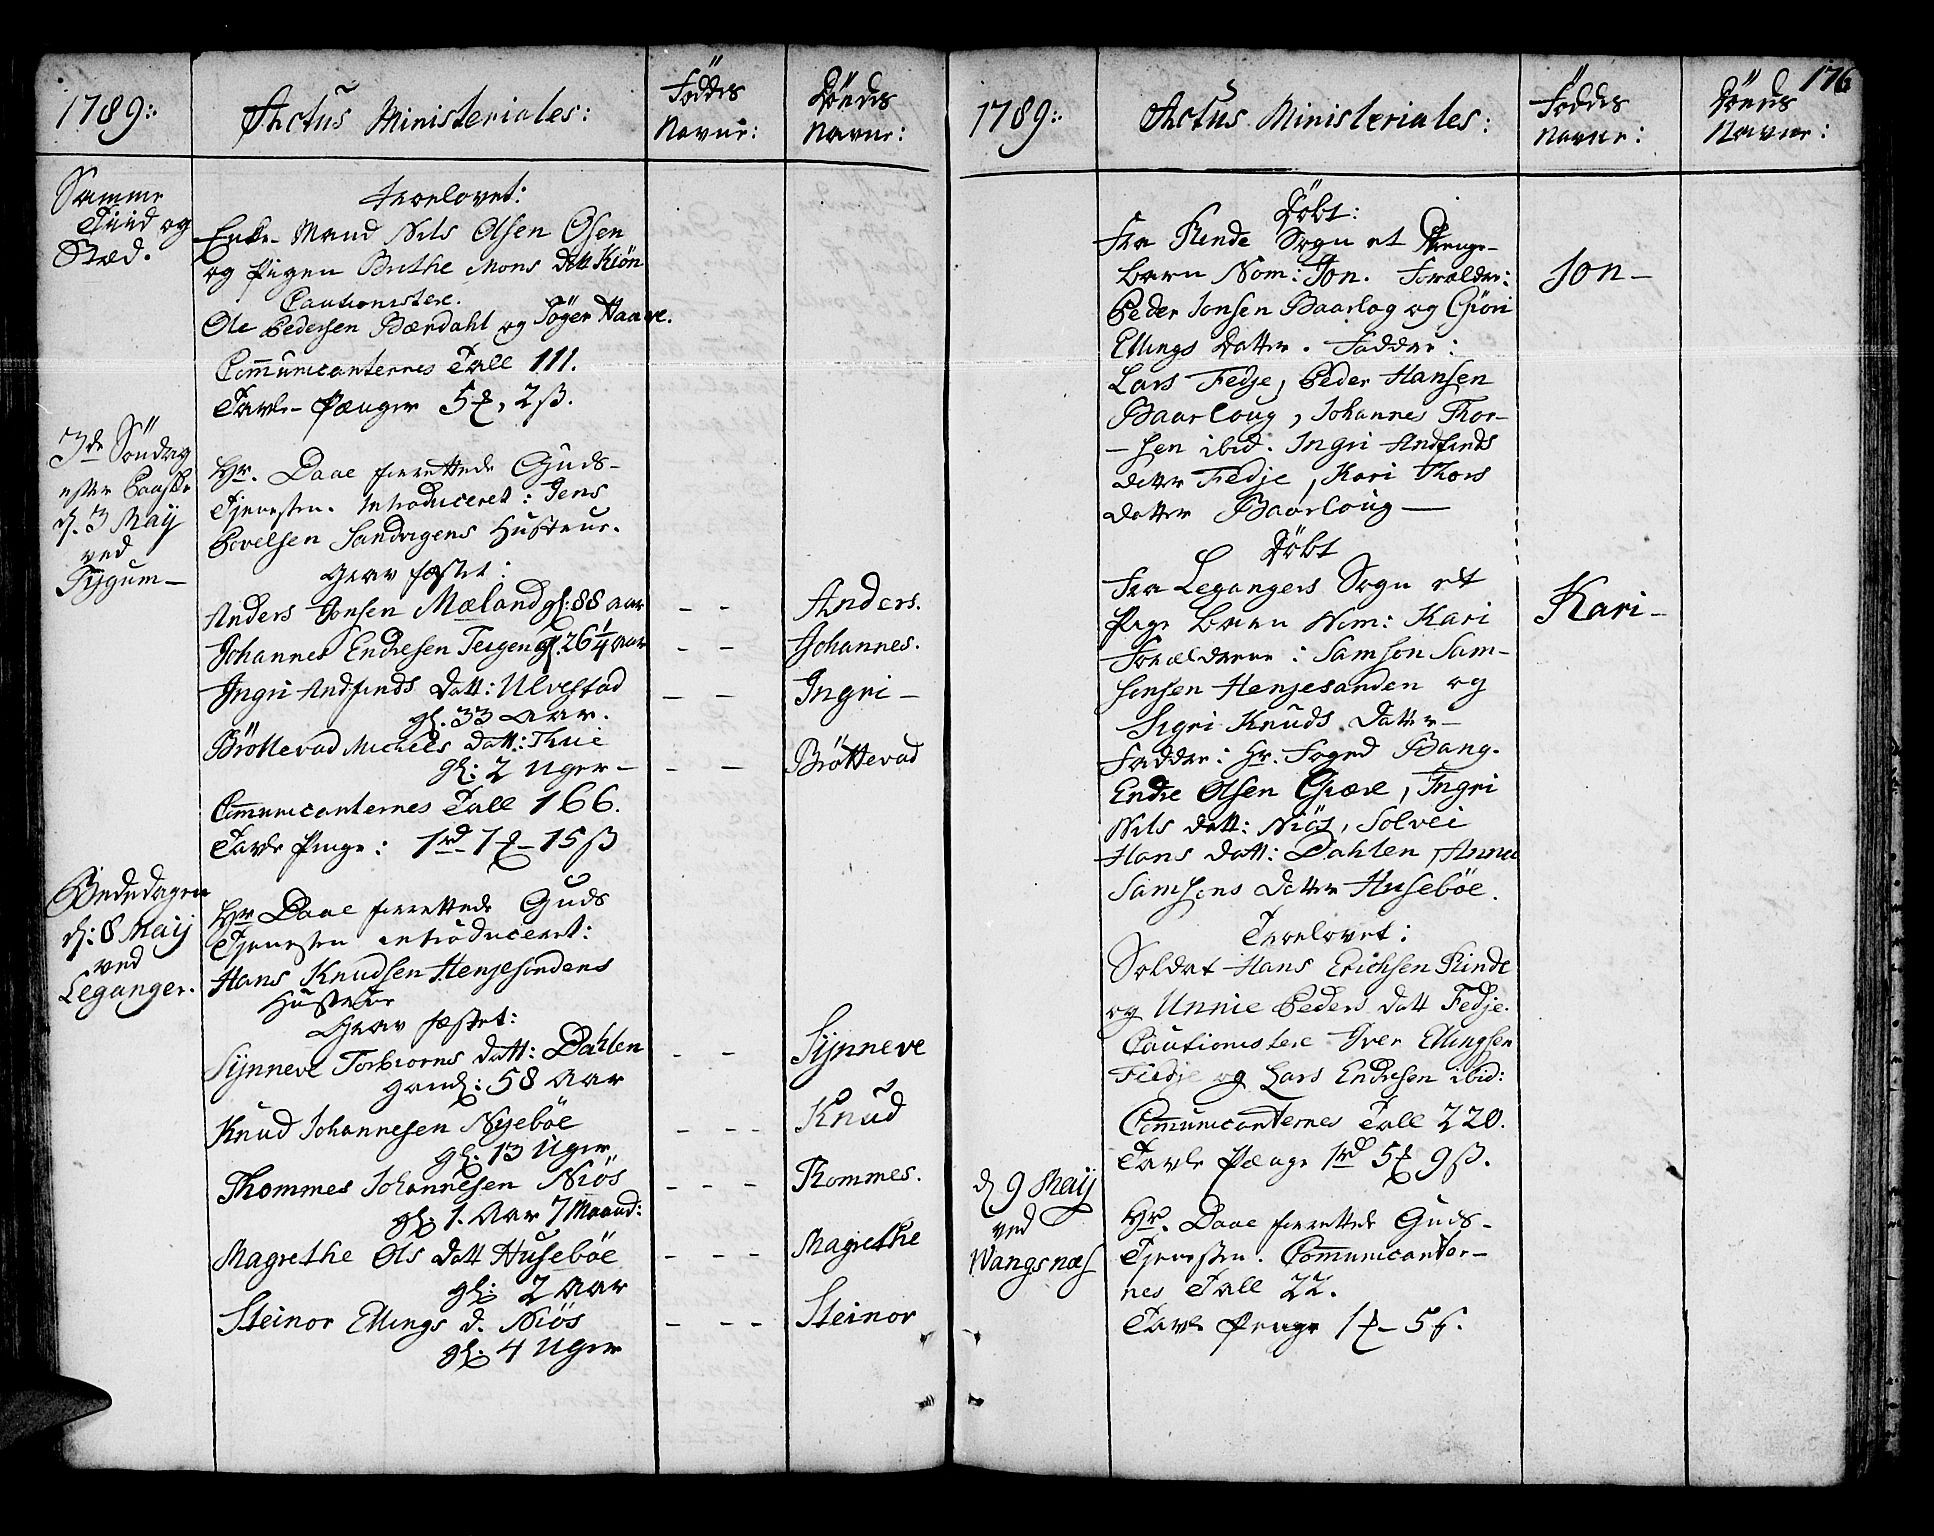 1789:
Actus Ministeriales:
Föddes Navne:
Dönds Navne:
Samme Tiid og Stæd.
Troelovet:
Enke-Mand Nils Olsen Osen
og Pigen Brithe Mons datt Kiön
Cautionistere.
Ole Pedersen Bærdahl og Töger Haave.
Communicanternes Tall 111.
Tavle-Pænger 5 ₰, 2 ß.
3de Söndag
efter Paaske
d. 3 Maij
ved
Tjygum-
Hr. Daae forrettede Guds-
Tjenesten. Introduceret: Jens
Povelsen Sandvigens Hustrue.
Grav fæstet:
Anders Jonsen Mæland gl: 88 aar - - Anders.
Johannes Endresen Teigen gl. 26 1/4 aar - - Johannes.
Ingri Andfinds datt: Ulvestad - - Ingri-
gl. 33 Aar.
Bröttevad Michels datt: Thue
gl: 2 Uger- - - Bröttevad
Communicanternes Tall 166.
Tavle Penge: 1 rd 1 ₰ - 15 ß
Bededagen
d: 8 Maij
ved
Leganger.
Hr Daae forrettede Guds
Tjenesten introduceret:
Hans Knudsen Henjesandens
Hustrue
Grav fæstet:
Synneve Torbiorns datt: Dahlen - - Synneve
gaml: 58 Aar
Knud Johannesen Nyebøe - - - Knud
gl. 13 Uger
Thommes Johannesen Niös - - - Thommes.
gl: 1. Aar 7 Maand:
Magrethe Ols datt Husebøe - - - Magrethe
gl: 2 Aar
Steinor Ellings d. Niös - - - Steinor
gl: 4 Uger
176
1789:
Actus Ministeriales:
Föddes Navne:
Dönds Navne:
Döbt:
Fra Rinde Sogn et Drenge-
Barn Nom: Jon. Forældre: Jon-
Peder Jonsen Baarlog og Giöri
Ellings Datter. Faddere:
Lars Fedje, Peder Hansen
Baarloug, Johannes Thor-
-sen ibid. Ingri Andfinds
datter Fedje, Kari Thors
datter Baarloug-
Döbt
Fra Legangers Sogn et
Pige Barn Nom: Kari Kari-
Forældrene: Samson Sam-
sonsen Henjesanden og
Sigri Knuds Datter-
Faddere: Hr. Foged Bang.
Endre Olsen Giære, Ingri
Nils datt: Niös, Solvei
Hans datt: Dahlen, Anna
Samsons datter Husebøe.
Troelovet:
Soldat Hans Erichsen Rinde
og Unnie Peders datt Fedje.
Cautionistere Iver Ellingsen
Fedje og Lars Endresen ibid:
Communicanternes Tall 220.
Tavle Pænge 1 rd 5 ₰ 9 ß.
d 9 Maij
ved
Wangsnæs
Hr. Daae forrettede Guds-
Tjenesten. Communicanter-
nes Tall 22.
Tavle Penge 1 ₰ - 5 ß.